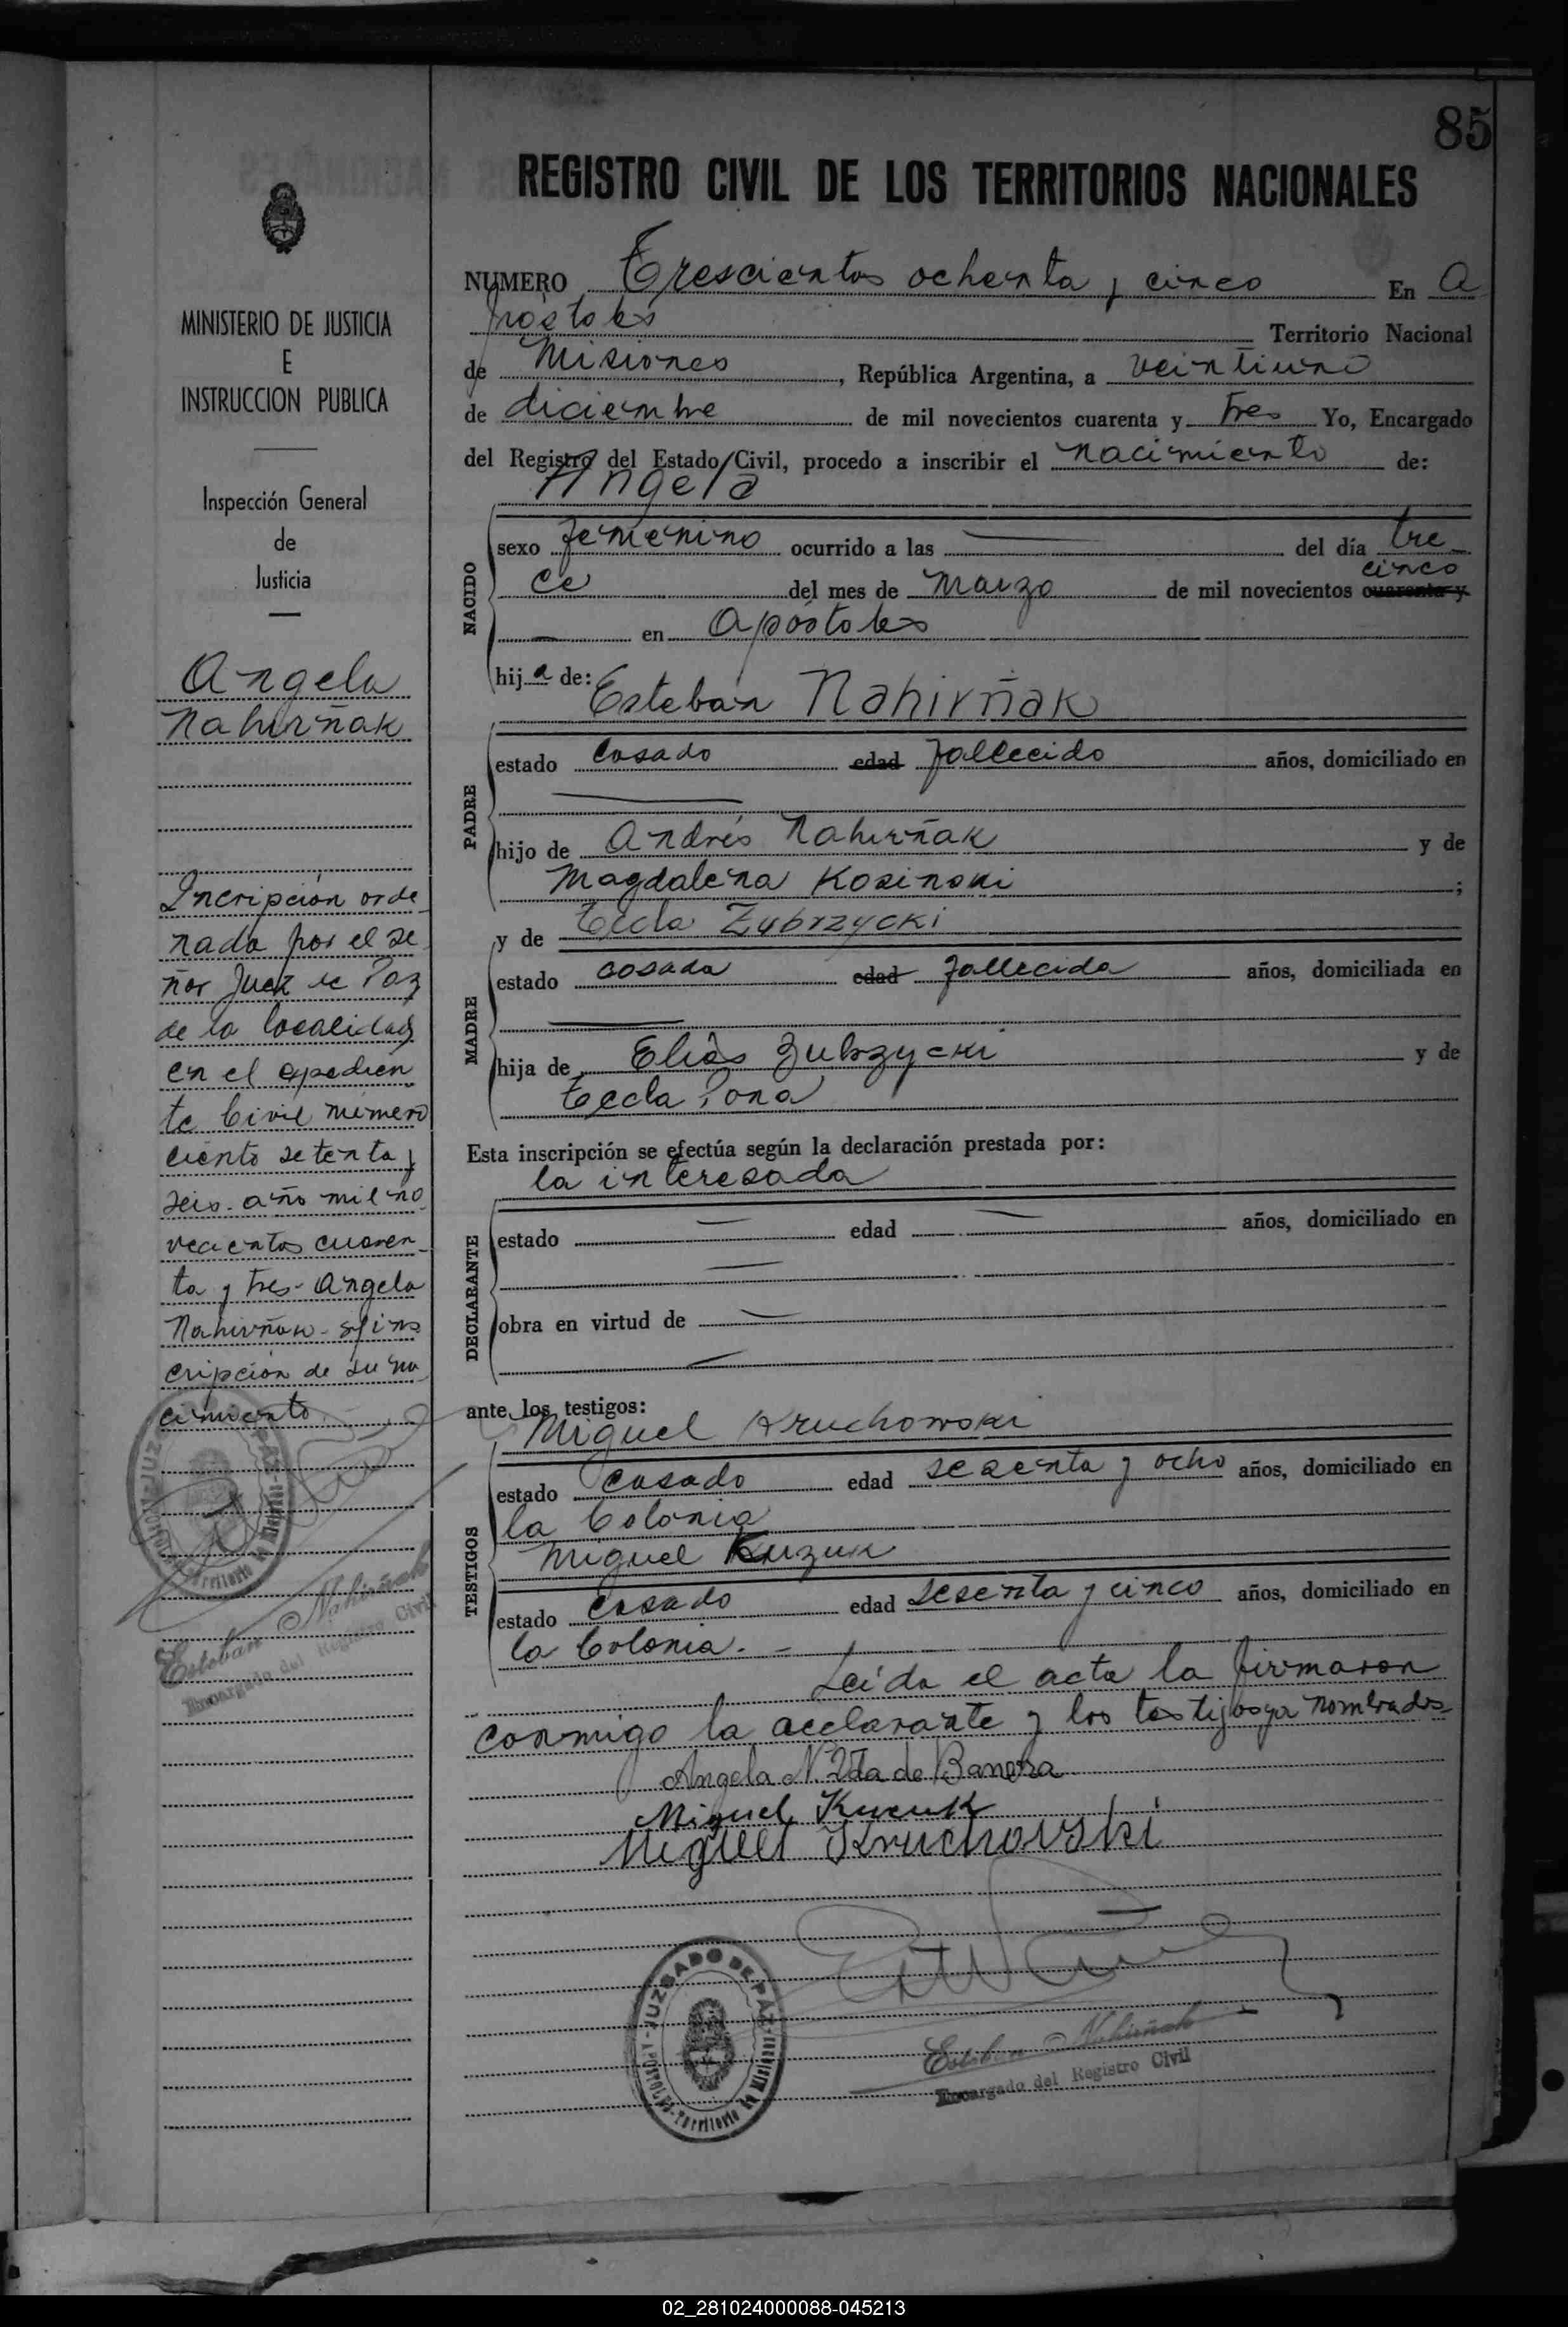 85
REGISTRO CIVIL DE LOS TERRITORIOS NACIONALES
NUMERO Trescientos ochenta y cinco En A
póstoles Territorio Nacional
de Misiones, República Argentina, a veintiuno
de diciembre de mil novecientos cuarenta y tres Yo, Encargado
del Registro del Estado Civil, procedo a inscribir el nacimiento de:
Angela
NACIDO
sexo femenino ocurrido a las — del día tre
ce del mes de Marzo de mil novecientos cuarenta y cinco
— en Apóstoles
hija de:
Esteban Nahirñak
PADRE
estado casado edad fallecido años, domiciliado en
—
hijo de Andrés Nahirñak y de
Magdalena Kosinski;
y de Tecla Zubrzycki
MADRE
estado casada edad fallecida años, domiciliada en
—
hija de Elías Zubrzycki y de
Tecla Pona
Esta inscripción se efectúa según la declaración prestada por:
la interesada
DECLARANTE
estado — edad — años, domiciliado en
—
obra en virtud de —
—
ante los testigos:
Miguel Kruchowski
TESTIGOS
estado casado edad sesenta y ocho años, domiciliado en
la Colonia
Miguel Kuzuk
estado casado edad sesenta y cinco años, domiciliado en
la Colonia. -
Leída el acta la firmaron
conmigo la declarante y los testigos ya nombrados-
Angela N. Vda de Banera
Miguel Kucuk
Miguel Kruchowski
JUZGADO DE PAZ
APOSTOLES-Territorio de Misiones
Esteban Nahirñak
Encargado del Registro Civil
MINISTERIO DE JUSTICIA
E
INSTRUCCION PUBLICA
Inspección General
de
Justicia
Angela
Nahirñak
Incripción orde
nada por el se
ñor Juez de Paz
de la localidad
en el expedien
te Civil número
ciento setenta y
seis- año mil no
vecientos cuaren-
ta y tres- Angela
Nahirñak- s/ ins
cripción de su na
cimiento
Esteban Nahirñak
Encargado del Registro Civil
02_281024000088-045213